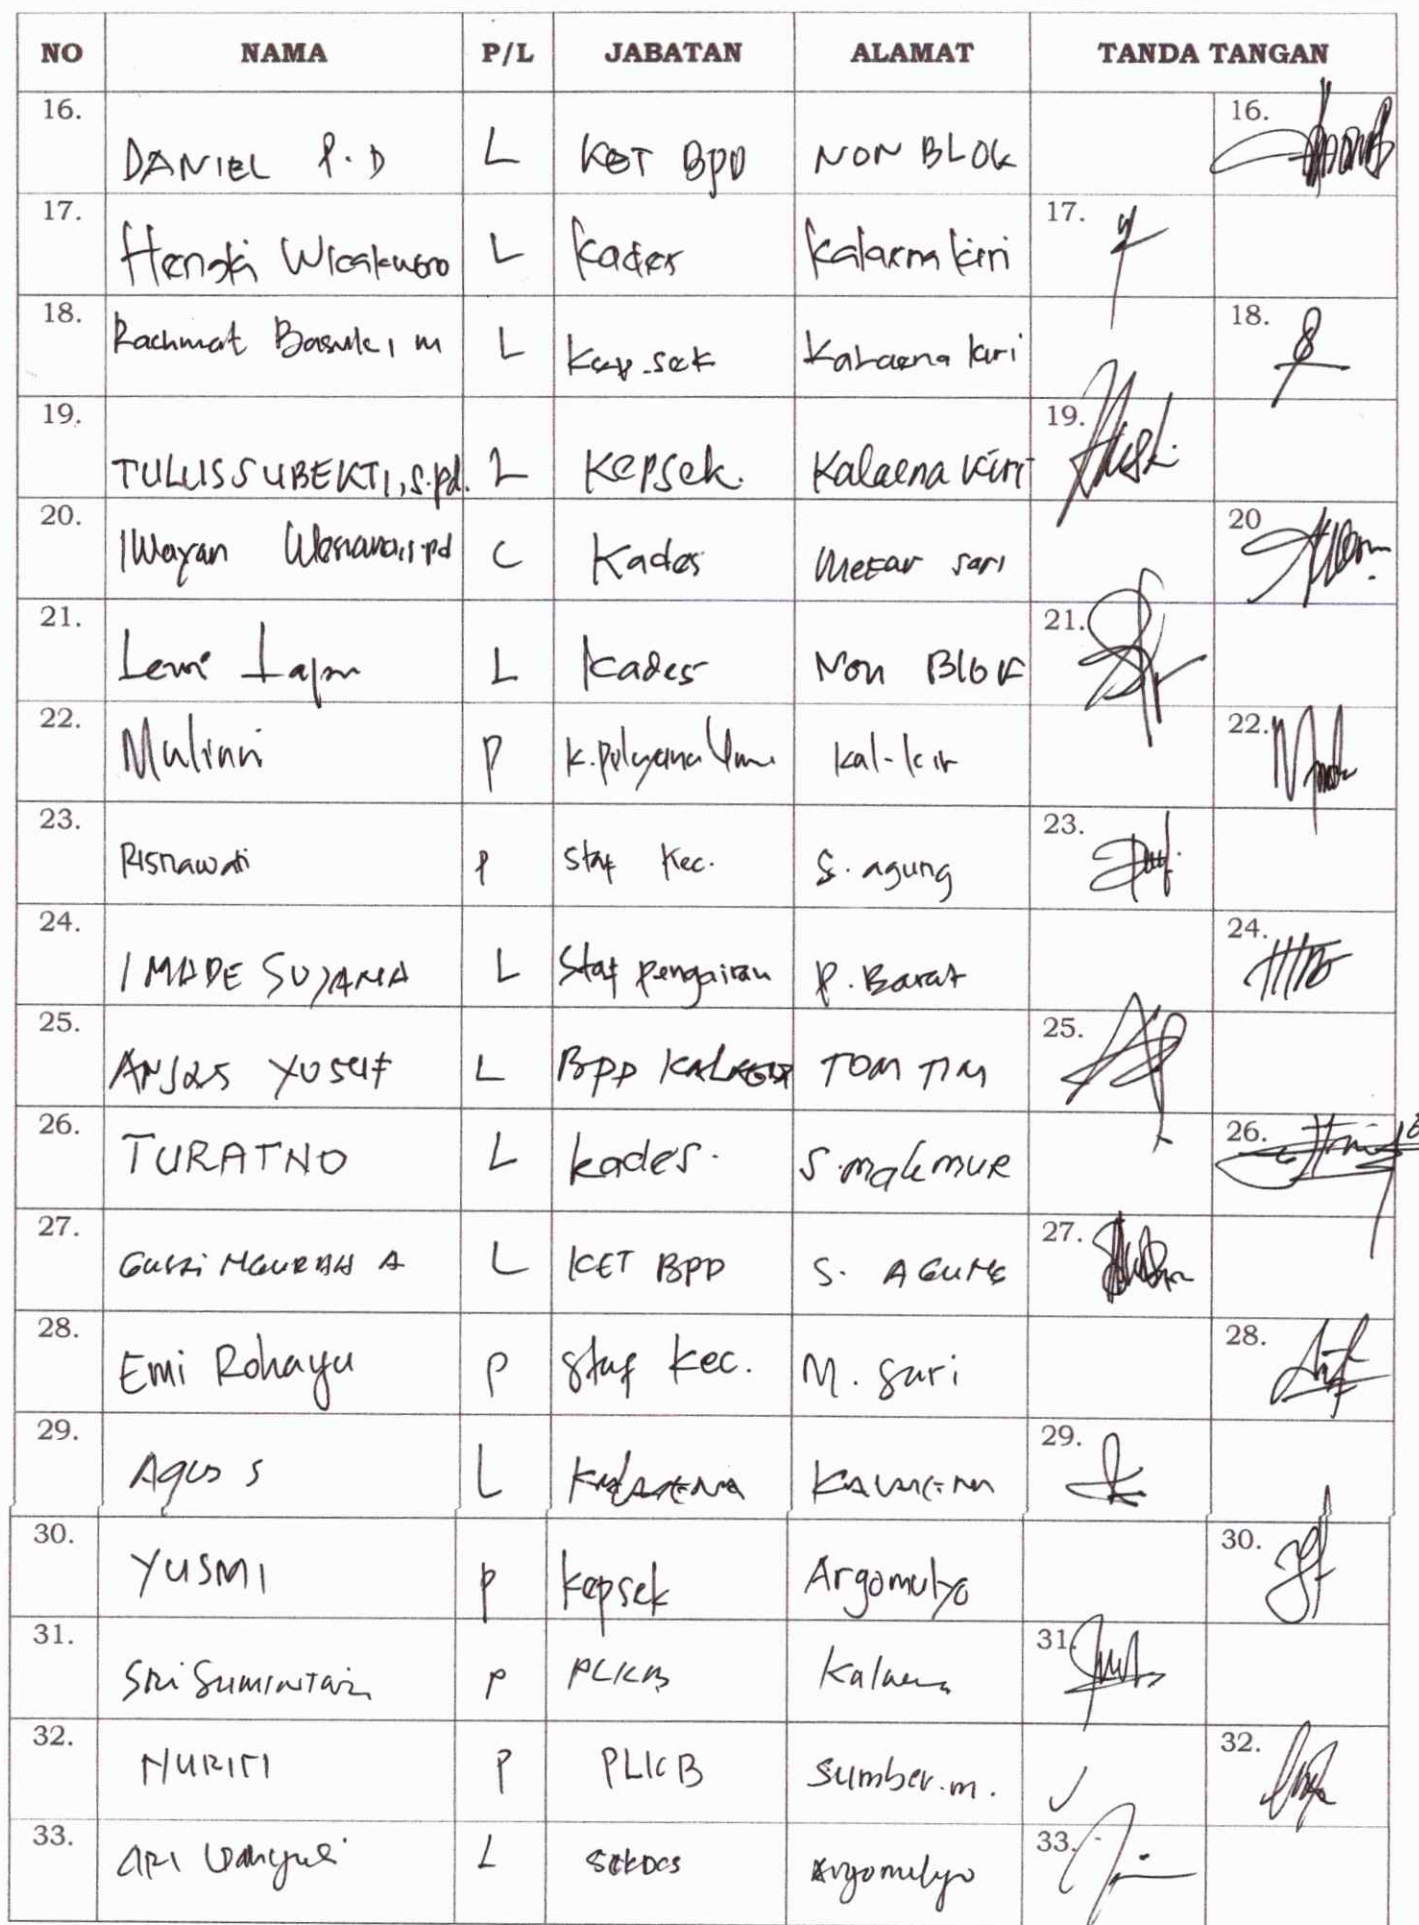 NO NAMA P/L JABATAN ALAMAT TANDA TANGAN
16. DANIEL P.D L KET BPD NON BLOK 16.
17. Hengki Wicaksono L Kades Kalaena kiri 17.
18. Rachmat Basuki, m L Kep.sek Kalaena kiri 18.
19. TULUS SUBEKTI, S.pd. L Kepsek. Kalaena kiri 19.
20. I Wayan L Kades Mekar sari 20
21. L Kades Non Blok 21.
22. Mulinni P Kal-kir 22.
23. Risnawati P Staf Kec. S. agung 23.
24. I MADE SUJANA L Staf pengairan P. Barat 24.
25. ANJAS YUSUF L BPP KALAENA TOM TIM 25.
26. TURATNO L kades. S.makmur 26.
27. GUSTI NGURAH A L KET BPD S. AGUNG 27.
28. Emi Rohayu P Staf kec. M. Sari 28.
29. Agus S L KALAENA KALAENA 29.
30. YUSMI P kepsek Argomulyo 30.
31. Sri Sumintari P PLKB Kalaena 31.
32. NURITI P PLKB Sumber.m. 32.
33. ARI Wahyudi L SEKDES Argomulyo 33.